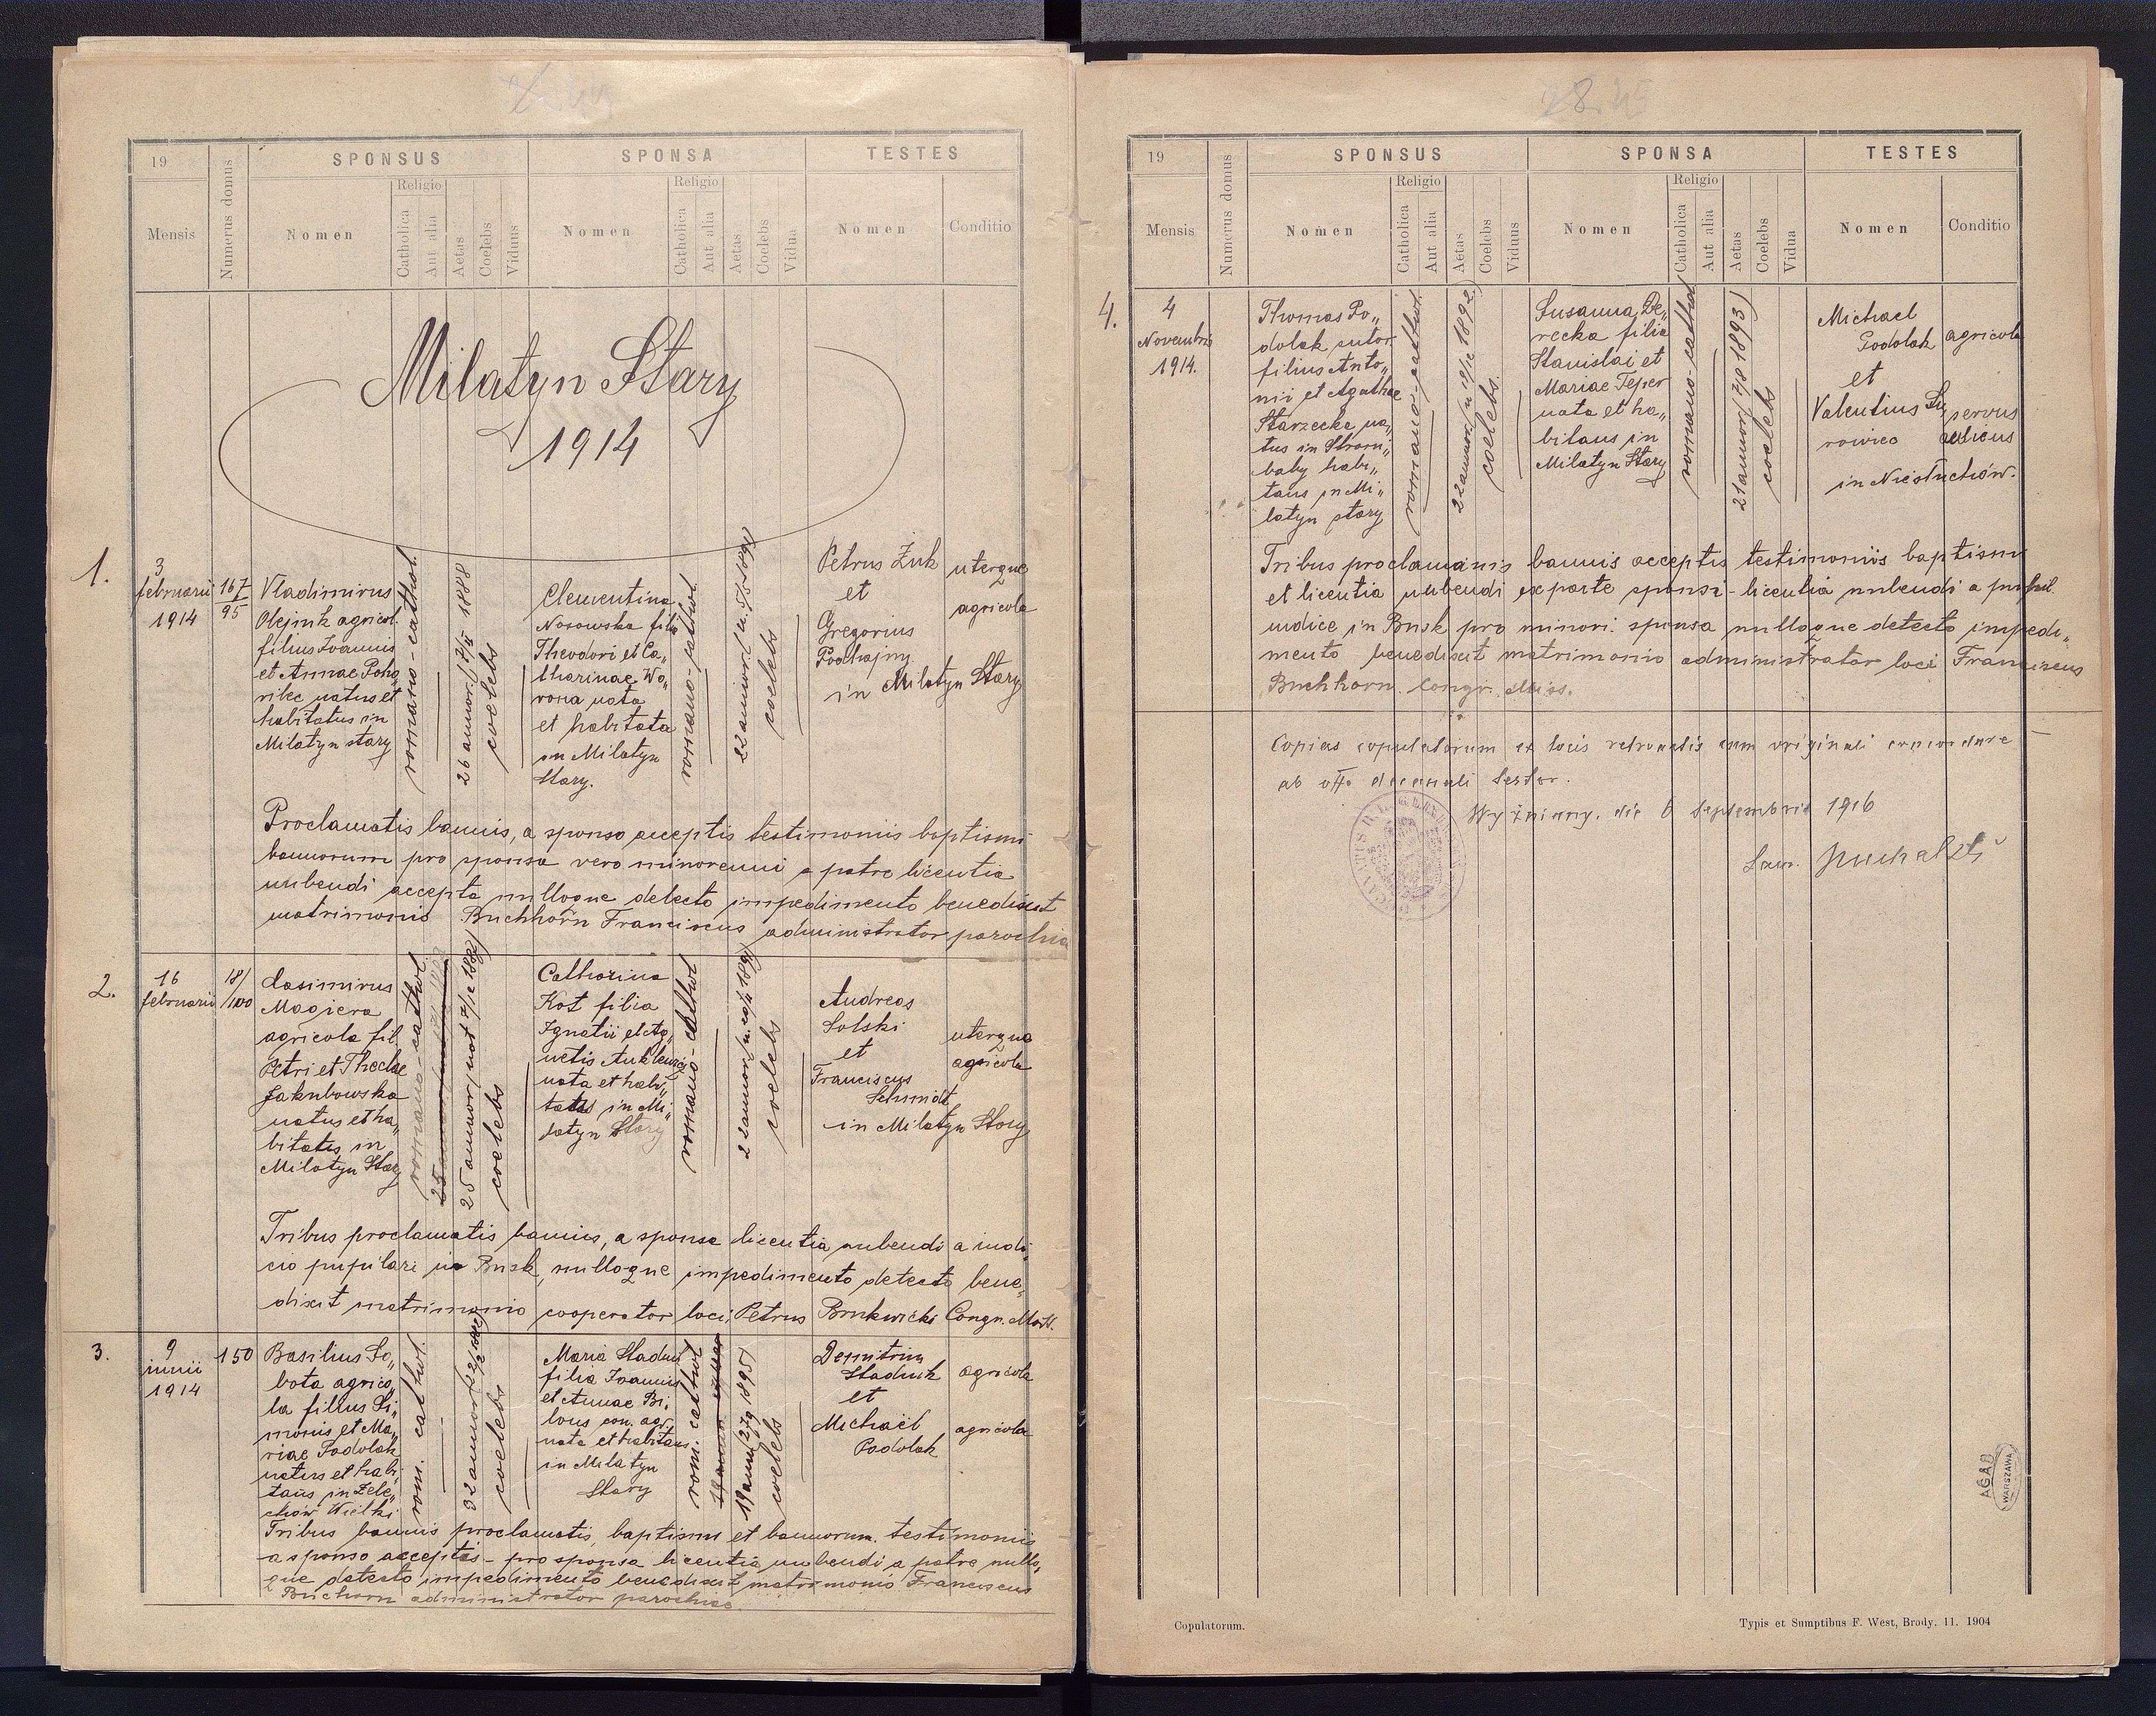 19
Numerus domus
SPONSUS
SPONSA
TESTES
Mensis
Nomen
Religio
Catholica
Aut alia
Aetas
Coelebs
Viduus
Nomen
Religio
Catholica
Aut alia
Aetas
Coelebs
Vidua
Nomen
Conditio
Milatyn Stary
1914
1.
3
februarii
1914
167
95
Vladimirus
Olejnik agricol.
filius Joannis
et Annae Poho„
rilec natus et
habitatus in
Milatyn stary
romano-cathol.
26 annor.
1888
coelebs
Clementina
Nosowska filia
Theodori et Ca„
tharinae Wo„
rona nata
et habitata
in Milatyn
Stary.
romano-cathol
22 annor.
coelebs
Petrus Żuk
et
Gregorius
Podhajny
in Milatyn Stary
uterque
agricola
Proclamatis bannis, a sponso acceptis testimoniis baptismi
bannorum pro sponsa vero minorenni a patre licentia
nubendi accepta nulloque detecto impedimento benedixit
matrimonio Buchhorn Franciscus administrator parochia
2.
16
februarii
18/
/100
Casimirus
Magiera
agricola fil.
Petri et Theclae
Jakubowska
natus et ha„
bitatis in
Milatyn Stary
romano-cathol
25 annor
coelebs
Catharina
Kot filia
Ignatii et Ag„
netis
nata et habi„
in Mi„
latyn Stary
romano-cathol
22 annor
coelebs
Andreas
Solski
et
Franciscus
Schmidt
in Milatyn Stary
uterque
agricola
Tribus proclamatis bannis, a sponsa licentia nubendi a iudi„
cio pupilari in Busk, nulloque impedimento detecto bene„
dixit matrimonio cooperator loci Petrus Brukwicki Congr. Miss.
3.
9
iunii
1914
150
Basilius So„
bota agrico„
la filius Si„
monis et Ma„
riae Podolak
natus et habi„
tans in Żele„
chów Wielki
rom. cathol.
32 annor
coelebs
Maria Stadnik
filia Joannis
et Annae Bi„
lous con. agr.
nata et habitans
in Milatyn
Stary
rom. cathol
19 annor
1895
coelebs
Demitrius
Stadnik
et
Michael
Podolak
agricola
agricola
Tribus bannis proclamatis, baptismi et bannorum testimoniis
a sponso acceptis - pro sponsa licentia nubendi a patre nullo„
que detecto impedimento benedixit matrimonio Franciscus
Buchorn administrator parochiae.
19
Numerus domus
SPONSUS
SPONSA
TESTES
Mensis
Nomen
Religio
Catholica
Aut alia
Aetas
Coelebs
Viduus
Nomen
Religio
Catholica
Aut alia
Aetas
Coelebs
Vidua
Nomen
Conditio
4.
4
Novembris
1914.
Thomas Po„
dolak sutor
filius Anto„
nii et Agathae
Starzecka na„
tus in Stroni„
baby habi„
tans in Mi„
latyn stary
romano-cathol.
22 annor.
1892)
coelebs.
Susanna De„
recka filia
Stanislai et
Mariae Teper
nata et ha„
bitans in
Milatyn Stary
romano-cathol
21 annor
1893)
coelebs
Michael
Podolak
et
Valentius Su„
rowiec
in Niestuchów.
agricola
servus
aulicus
Tribus proclamanis bannis acceptis testimoniis baptismi
et licentia nubendi ex parte sponsi - licentia nubendi a pupul.
iudice in Busk pro minori. sponsa nulloque detecto impedi„
mento benedixit matrimonio administrator loci Franciscus
Buchhorn. Congr. Miss.
Copias copulatorum ex locis retronatis cum originali concordare
ab offo decanali testor.
Wyżniany. die 6 Septembris 1916
AGAD
WARSZAWA
Copulatorum.
Typis et Sumptibus F. West, Brody. 11. 1904